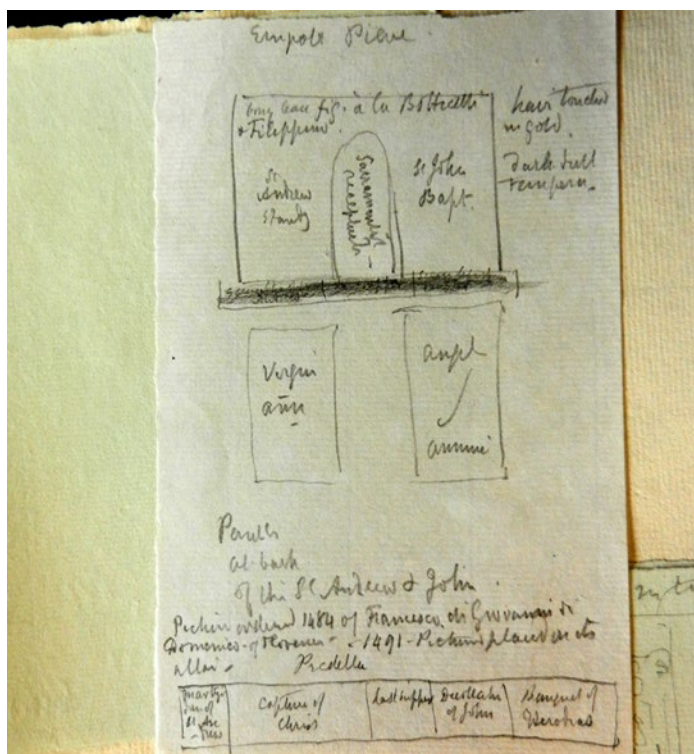 Empoli Pieve.
long lean fig. à la Botticelli
& Filippino.
hair touched
in gold.
dark dull
tempera.
St
Andrew
stands
Sacrament
receptacle
St John
Bapt.
Virgin
ann
angel
annunc
Panels
at back
of the St Andrew & John.
Picture ordered 1484 of Francesco di Giovanni di
Domenico of Florence - 1491 - Picture placed on its
altar -
Predella
martyr
dom of
St An
drew
Capture of
Christ
Last supper
of John
Banquet of
Herodias